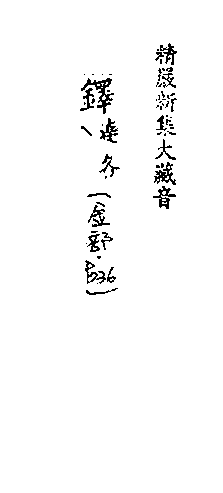 精嚴新集大藏音
鐸、達各（金部·P36）